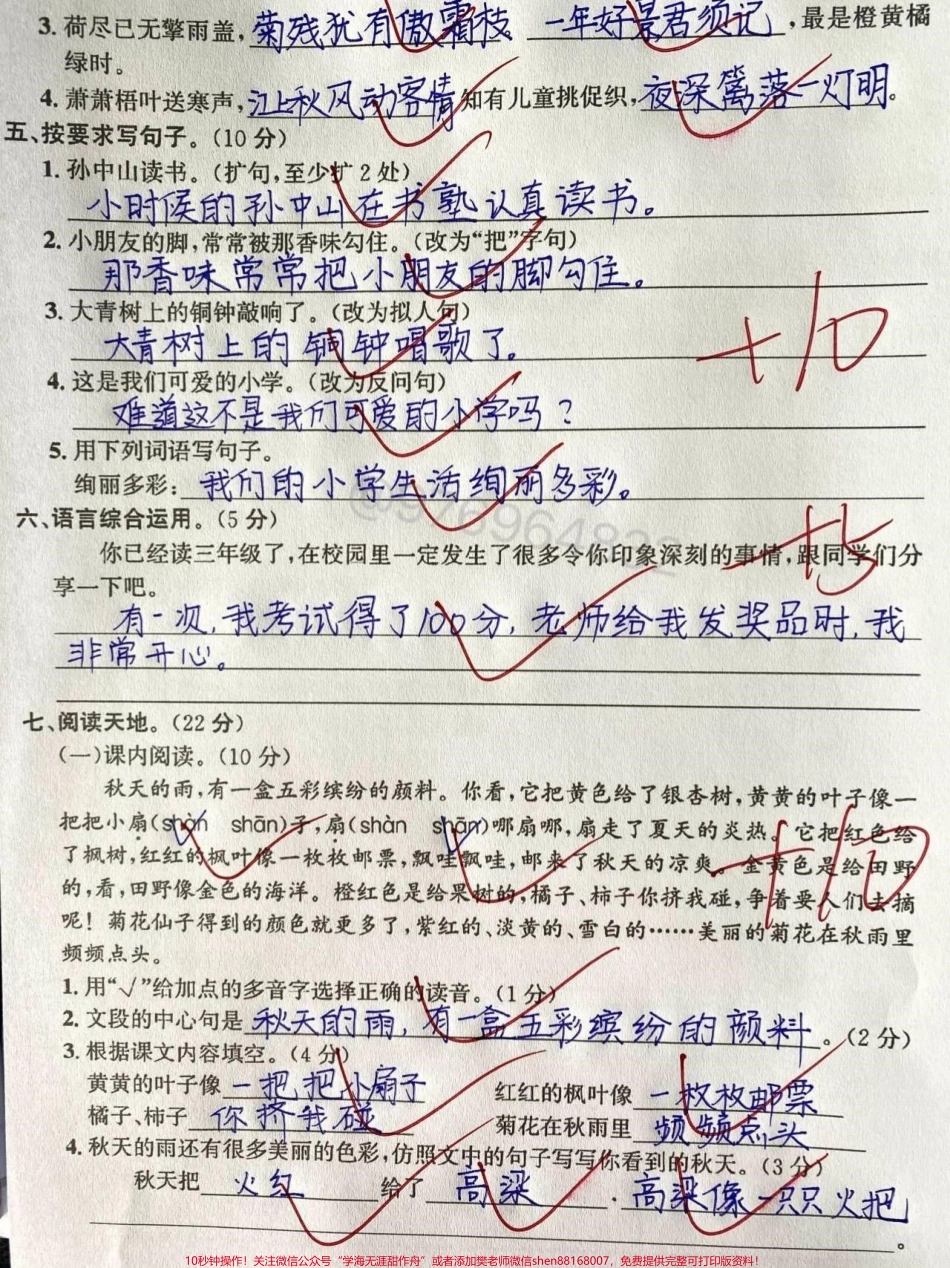 3. 荷尽已无擎雨盖,菊残犹有傲霜枝 一年好景君须记,最是橙黄橘
绿时。
4. 萧萧梧叶送寒声,江上秋风动客情 知有儿童挑促织,夜深篱落一灯明。
五、按要求写句子。(10 分)
1. 孙中山读书。(扩句,至少扩 2 处)
小时候的孙中山在书塾认真读书。
2. 小朋友的脚,常常被那香味勾住。(改为“把”字句)
那香味常常把小朋友的脚勾住。
3. 大青树上的铜钟敲响了。(改为拟人句)
大青树上的铜钟唱歌了。
+10
4. 这是我们可爱的小学。(改为反问句)
难道这不是我们可爱的小学吗?
5. 用下列词语写句子。
绚丽多彩: 我们的小学生活绚丽多彩。
六、语言综合运用。(5 分)
+5
你已经读三年级了,在校园里一定发生了很多令你印象深刻的事情,跟同学们分
享一下吧。
有一次,我考试得了100分,老师给我发奖品时,我
非常开心。
七、阅读天地。(22 分)
(一)课内阅读。(10 分)
秋天的雨,有一盒五彩缤纷的颜料。你看,它把黄色给了银杏树,黄黄的叶子像一
把把小扇(shàn shān)子,扇(shàn shān)哪扇哪,扇走了夏天的炎热。它把红色给
了枫树,红红的枫叶像一枚枚邮票,飘哇飘哇,邮来了秋天的凉爽。金黄色是给田野
+10
的,看,田野像金色的海洋。橙红色是给果树的,橘子、柿子你挤我碰,争着要人们去摘
呢!菊花仙子得到的颜色就更多了,紫红的、淡黄的、雪白的……美丽的菊花在秋雨里
频频点头。
1. 用“√”给加点的多音字选择正确的读音。(1 分)
2. 文段的中心句是 秋天的雨,有一盒五彩缤纷的颜料 。(2 分)
3. 根据课文内容填空。(4 分)
黄黄的叶子像 一把把小扇子 红红的枫叶像 一枚枚邮票
橘子、柿子 你挤我碰 菊花在秋雨里 频频点头
4. 秋天的雨还有很多美丽的色彩,仿照文中的句子写写你看到的秋天。(3 分)
秋天把 火红 给了 高梁 . 高梁像一只只火把
。
10秒钟操作!关注微信公众号“学海无涯甜作舟”或者添加樊老师微信shen88168007,免费提供完整可打印版资料!